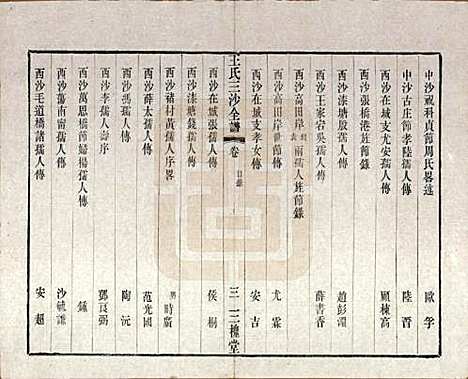 中沙觀科貞節周氏畧述　歐孚
中沙古庄節孝陸孺人傳　陸晋
西沙在城支尤安孺人傳　顧棟高
西沙張橋港旌節錄
西沙漆塘殷孺人傳　趙彭淵
西沙王家岩吳孺人傳　薛書香
西沙高田岸 兩孺人旌節錄
西沙高田岸 節傳　尤霖
西沙在城支孝女傳　安吉
王氏三沙全譜　卷　目錄　三　三槐堂
西沙在城張孺人傳　侯桐
西沙漆塘錢孺人傳
西沙禇村黄孺人序畧　男時廣
西沙薛太孺人傳　范光國
西沙馮孺人傳　陶沅
西沙李孺人壽序　鄧良弼
西沙萬思橋節婦楊孺人傳　鍾
西沙蕩南甯孺人傳　沙毓謙
西沙毛道橋諸孺人傳　安超